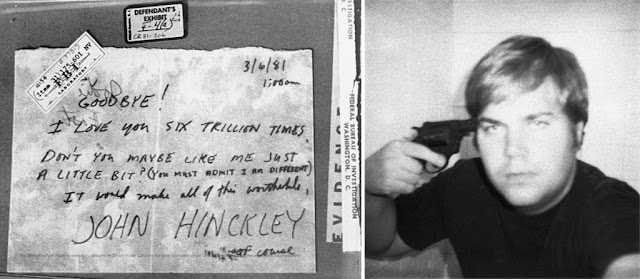 DEFENDANT'S
EXHIBIT
CR 81-306
FBI
LABORATORY
3/6/81
1:00am
GOODBYE!
I LOVE YOU SIX TRILLION TIMES.
DON'T YOU MAYBE LIKE ME JUST
A LITTLE BIT? (YOU MUST ADMIT I AM DIFFERENT)
IT WOULD MAKE ALL OF THIS WORTHWHILE.
JOHN HINCKLEY
of course
EVIDENCE
FEDERAL BUREAU OF INVESTIGATION
WASHINGTON, D. C.
INVESTIGATION
D. C.